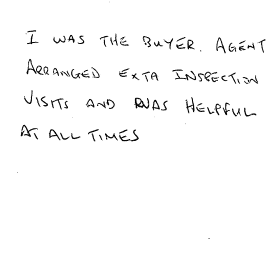 I WAS THE BUYER. AGENT
ARRANGED EXTA INSPECTION
VISITS AND WAS HELPFUL
AT ALL TIMES